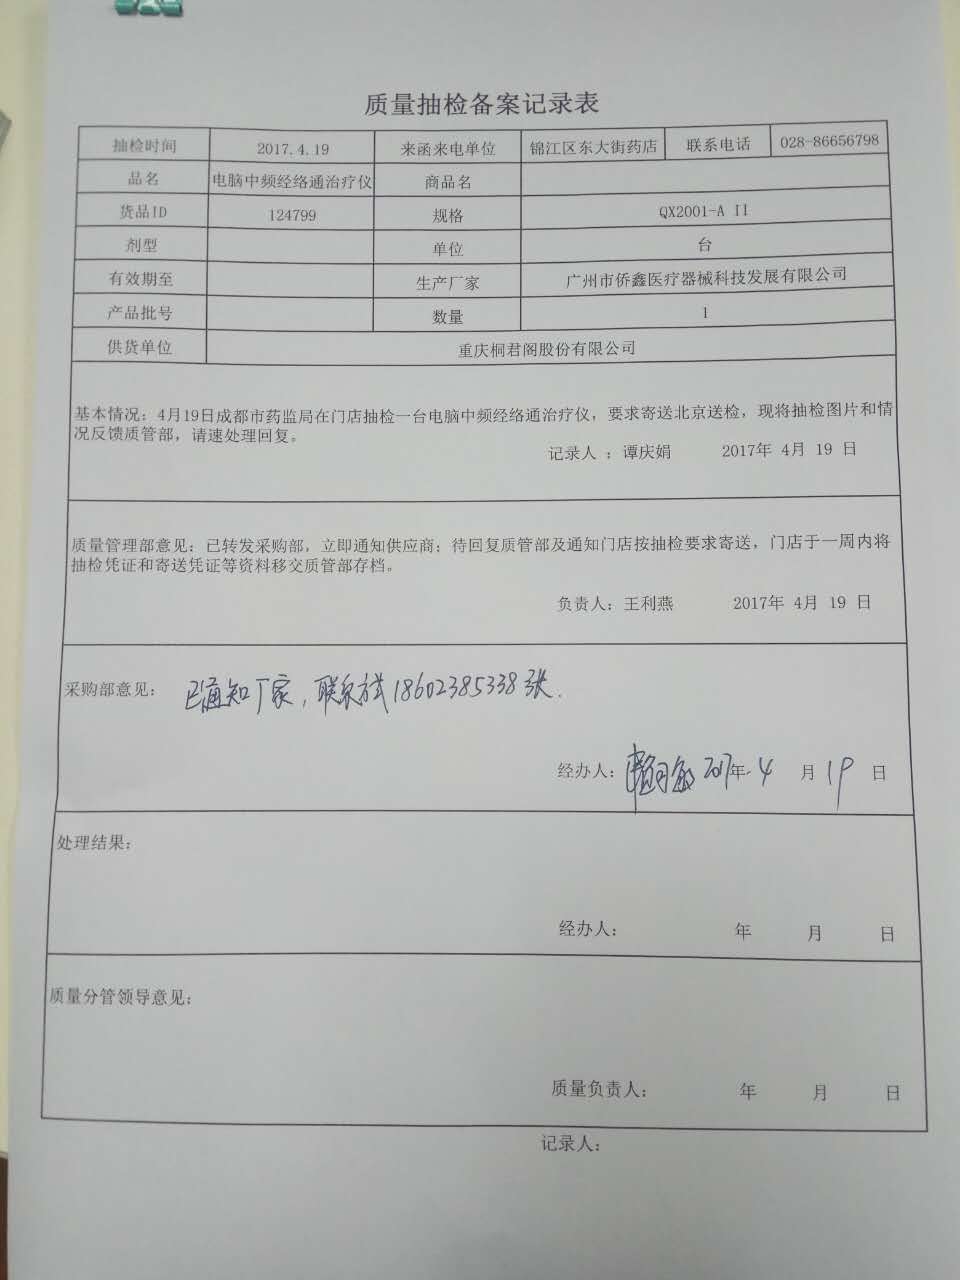 质量抽检备案记录表
抽检时间 2017.4.19 来函来电单位 锦江区东大街药店 联系电话 028-86656798
品名 电脑中频经络通治疗仪 商品名
货品ID 124799 规格 QX2001-A II
剂型 单位 台
有效期至 生产厂家 广州市侨鑫医疗器械科技发展有限公司
产品批号 数量 1
供货单位 重庆桐君阁股份有限公司
基本情况：4月19日成都市药监局在门店抽检一台电脑中频经络通治疗仪，要求寄送北京送检，现将抽检图片和情
况反馈质管部，请速处理回复。
记录人 ：谭庆娟 2017年 4月 19 日
质量管理部意见：已转发采购部，立即通知供应商；待回复质管部及通知门店按抽检要求寄送，门店于一周内将
抽检凭证和寄送凭证等资料移交质管部存档。
负责人：王利燕 2017年 4月 19 日
采购部意见： 已通知厂家，联系方式18602385338张.
经办人： 2017年 4 月 19 日
处理结果：
经办人： 年 月 日
质量分管领导意见：
质量负责人： 年 月 日
记录人：